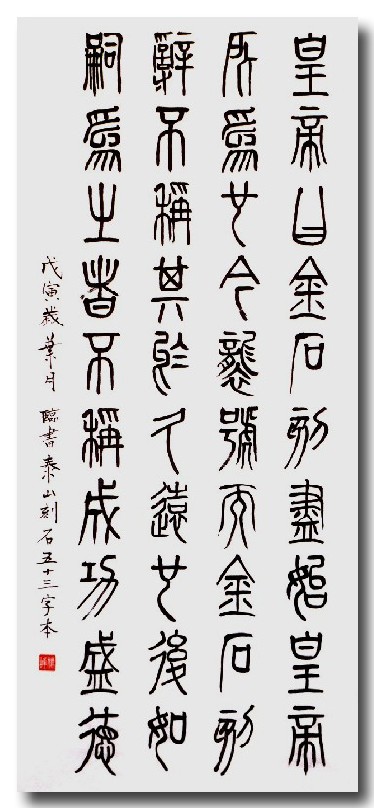 皇帝曰金石刻盡始皇帝
所爲也今襲號而金石刻
辭不稱其於久遠也後如
嗣爲之者不稱成功盛德
戊寅歲葉月 臨書泰山刻石五十三字本